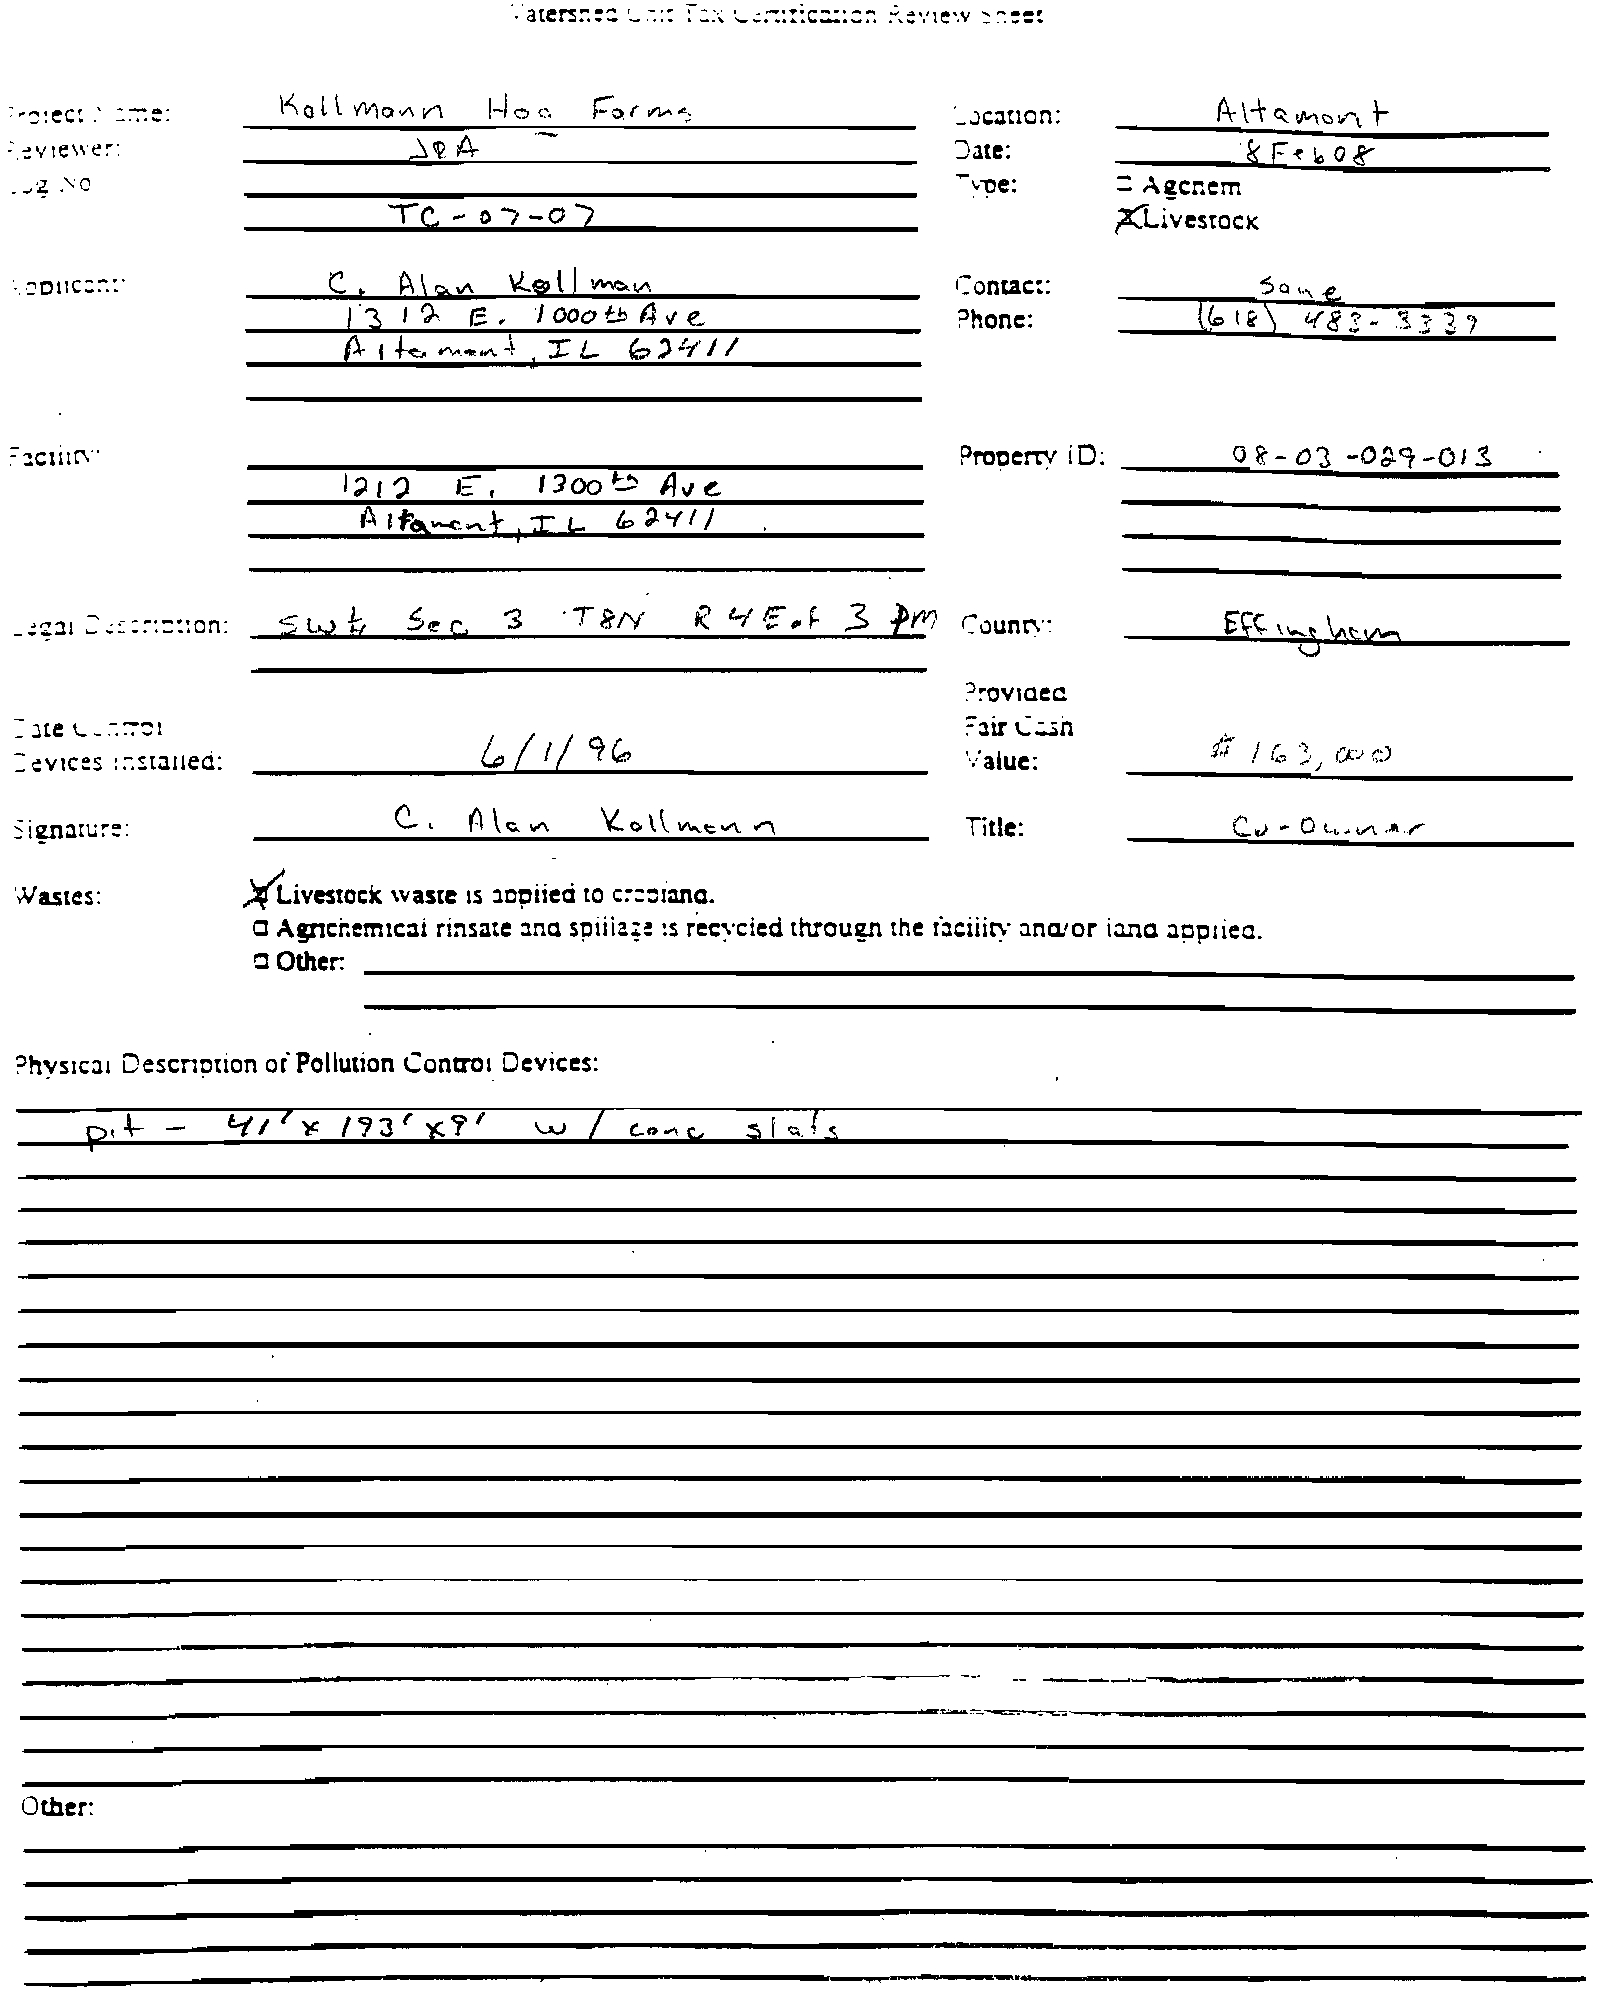 Watershed Unit Tax Certification Review Sheet
Project Name: Kollmann Hog Farms Location: Altamont
Reviewer: JRA Date: 8 Feb 08
Log No Type: Agchem
TC-07-07 Livestock
Applicant: C. Alan Kollman Contact: Same
1312 E. 1000th Ave Phone: (618) 483-3339
Altamont, IL 62411
Facility: Property ID: 08-03-029-013
1212 E. 1300th Ave
Altamont, IL 62411
Legal Description: SW¼ Sec 3 T8N R4E of 3 PM County: Effingham
Provided
Date Control Fair Cash
Devices Installed: 6/1/96 Value: $163,000
Signature: C. Alan Kollmann Title: Co-Owner
Wastes: Livestock waste is applied to cropland.
Agrichemical rinsate and spillage is recycled through the facility and/or land applied.
Other:
Physical Description of Pollution Control Devices:
pit - 41' x 193' x 9' w/ conc slats
Other: